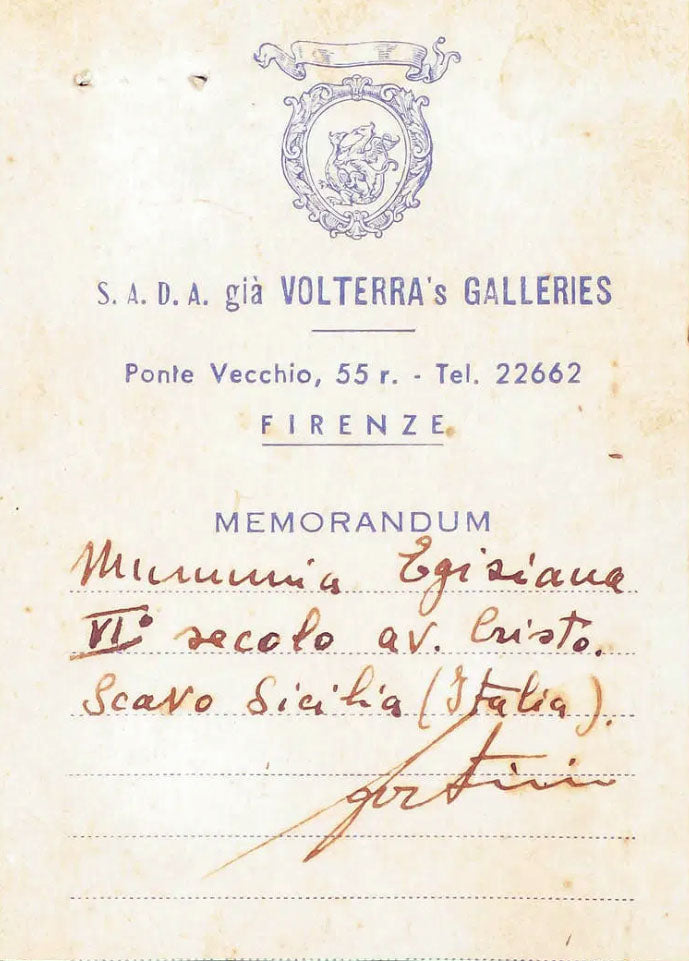 S. A. D. A. già VOLTERRA's GALLERIES
Ponte Vecchio, 55 r. - Tel. 22662
FIRENZE
MEMORANDUM
Mummia Egiziana
VI° secolo av. Cristo.
Scavo Sicilia (Italia).